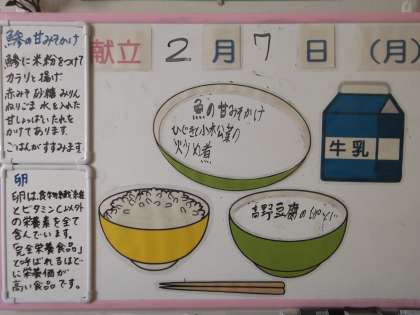 献立 2月7日(月)
鯵の甘みそかけ
鯵に米粉をつけて
カラリと揚げ
赤みそ 砂糖 みりん
ねりごま 水を入れた
甘じょっぱいたれを
かけてあります。
ごはんがすすみます。
卵
卵は、食物繊維
とビタミンC以外
の栄養素を全て
含んでいます。
「完全栄養食品」
と呼ばれるほど
に栄養価が
高い食品です。
魚の甘みそかけ
ひじきと小松菜の
炒り煮
牛乳
高野豆腐の